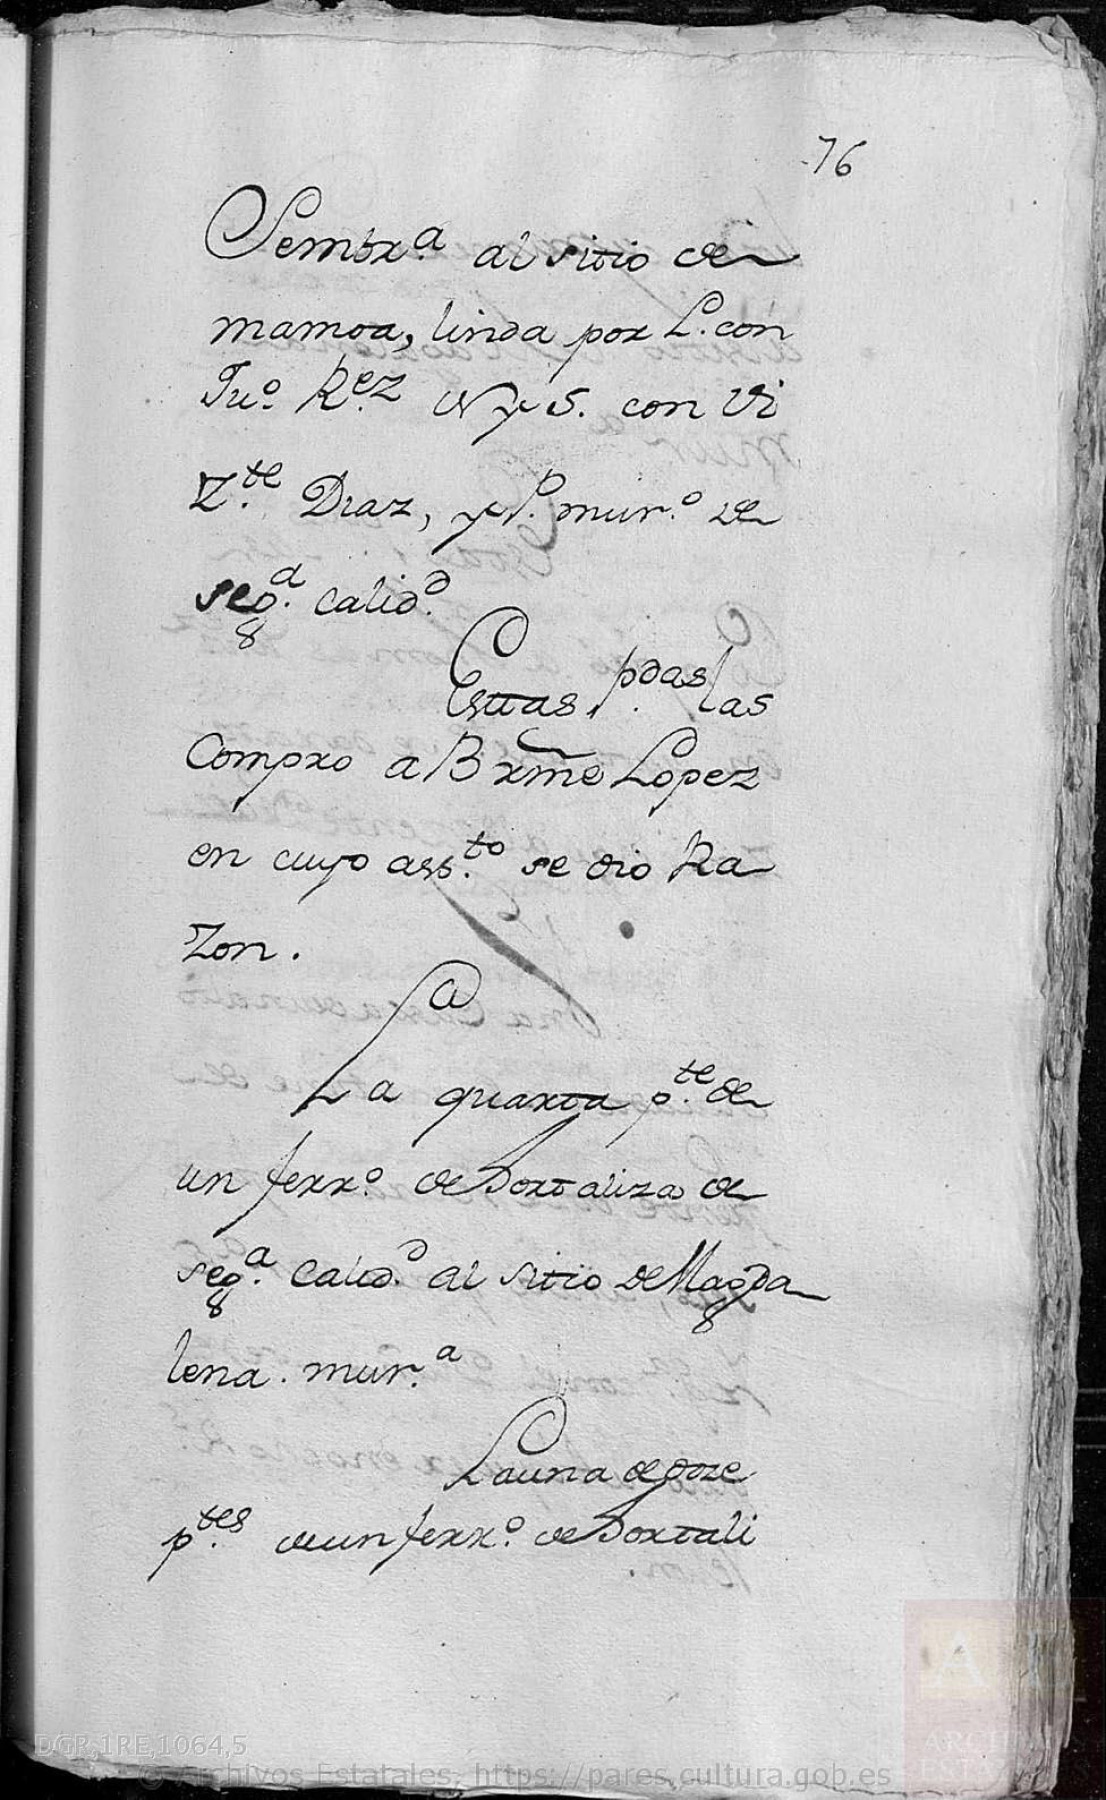 76
Sembr.ª al sitio de
mamoa, linda por L. con
Ju.º R.ez N y S. con Vi
Z.te Diaz, y P. mur.º de
seg.ª calid.d
Esttas p.das las
Compro a Brme Lopez
en cuyo ass.to se dio Ra
zon.
La quarta p.te de
un ferr.º de Hortaliza de
seg.ª Calid.d al sitio de Magda
lena. mur.ª
La una de doze
p.tes de un ferr.º de Hortali
DGR,1RE,1064,5
© Archivos Estatales, https://pares.cultura.gob.es
ARCHIVOS
ESTATALES